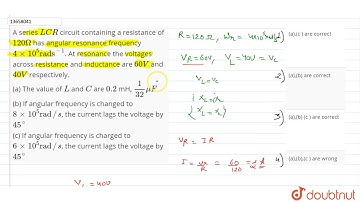 13658041
A series LCR circuit containing a resistance of
120Ω has angular resonance frequency
4 × 10⁵rads⁻¹. At resonance the voltages
across resistance and inductance are 60V and
40V respectively.
(a) The value of L and C are 0.2 mH, 1/32 μF
(b) If angular frequency is changed to
8 × 10⁵rad/s, the current lags the voltage by
45°
(c) If angular frequency is changed to
6 × 10⁵rad/s, the current lags the voltage by
45°
V_L = 40V
R = 120Ω,
V_R = 60V, V_L = 40V = V_C
V_L = V_C
V_R = IR
I = V_R/R = 60/120 = 1/2 A
1) (a),(c) are correct
2) (a),(b) are correct
3) (b),(c) are correct
4) (a),(b),(c) are wrong
doubtnut